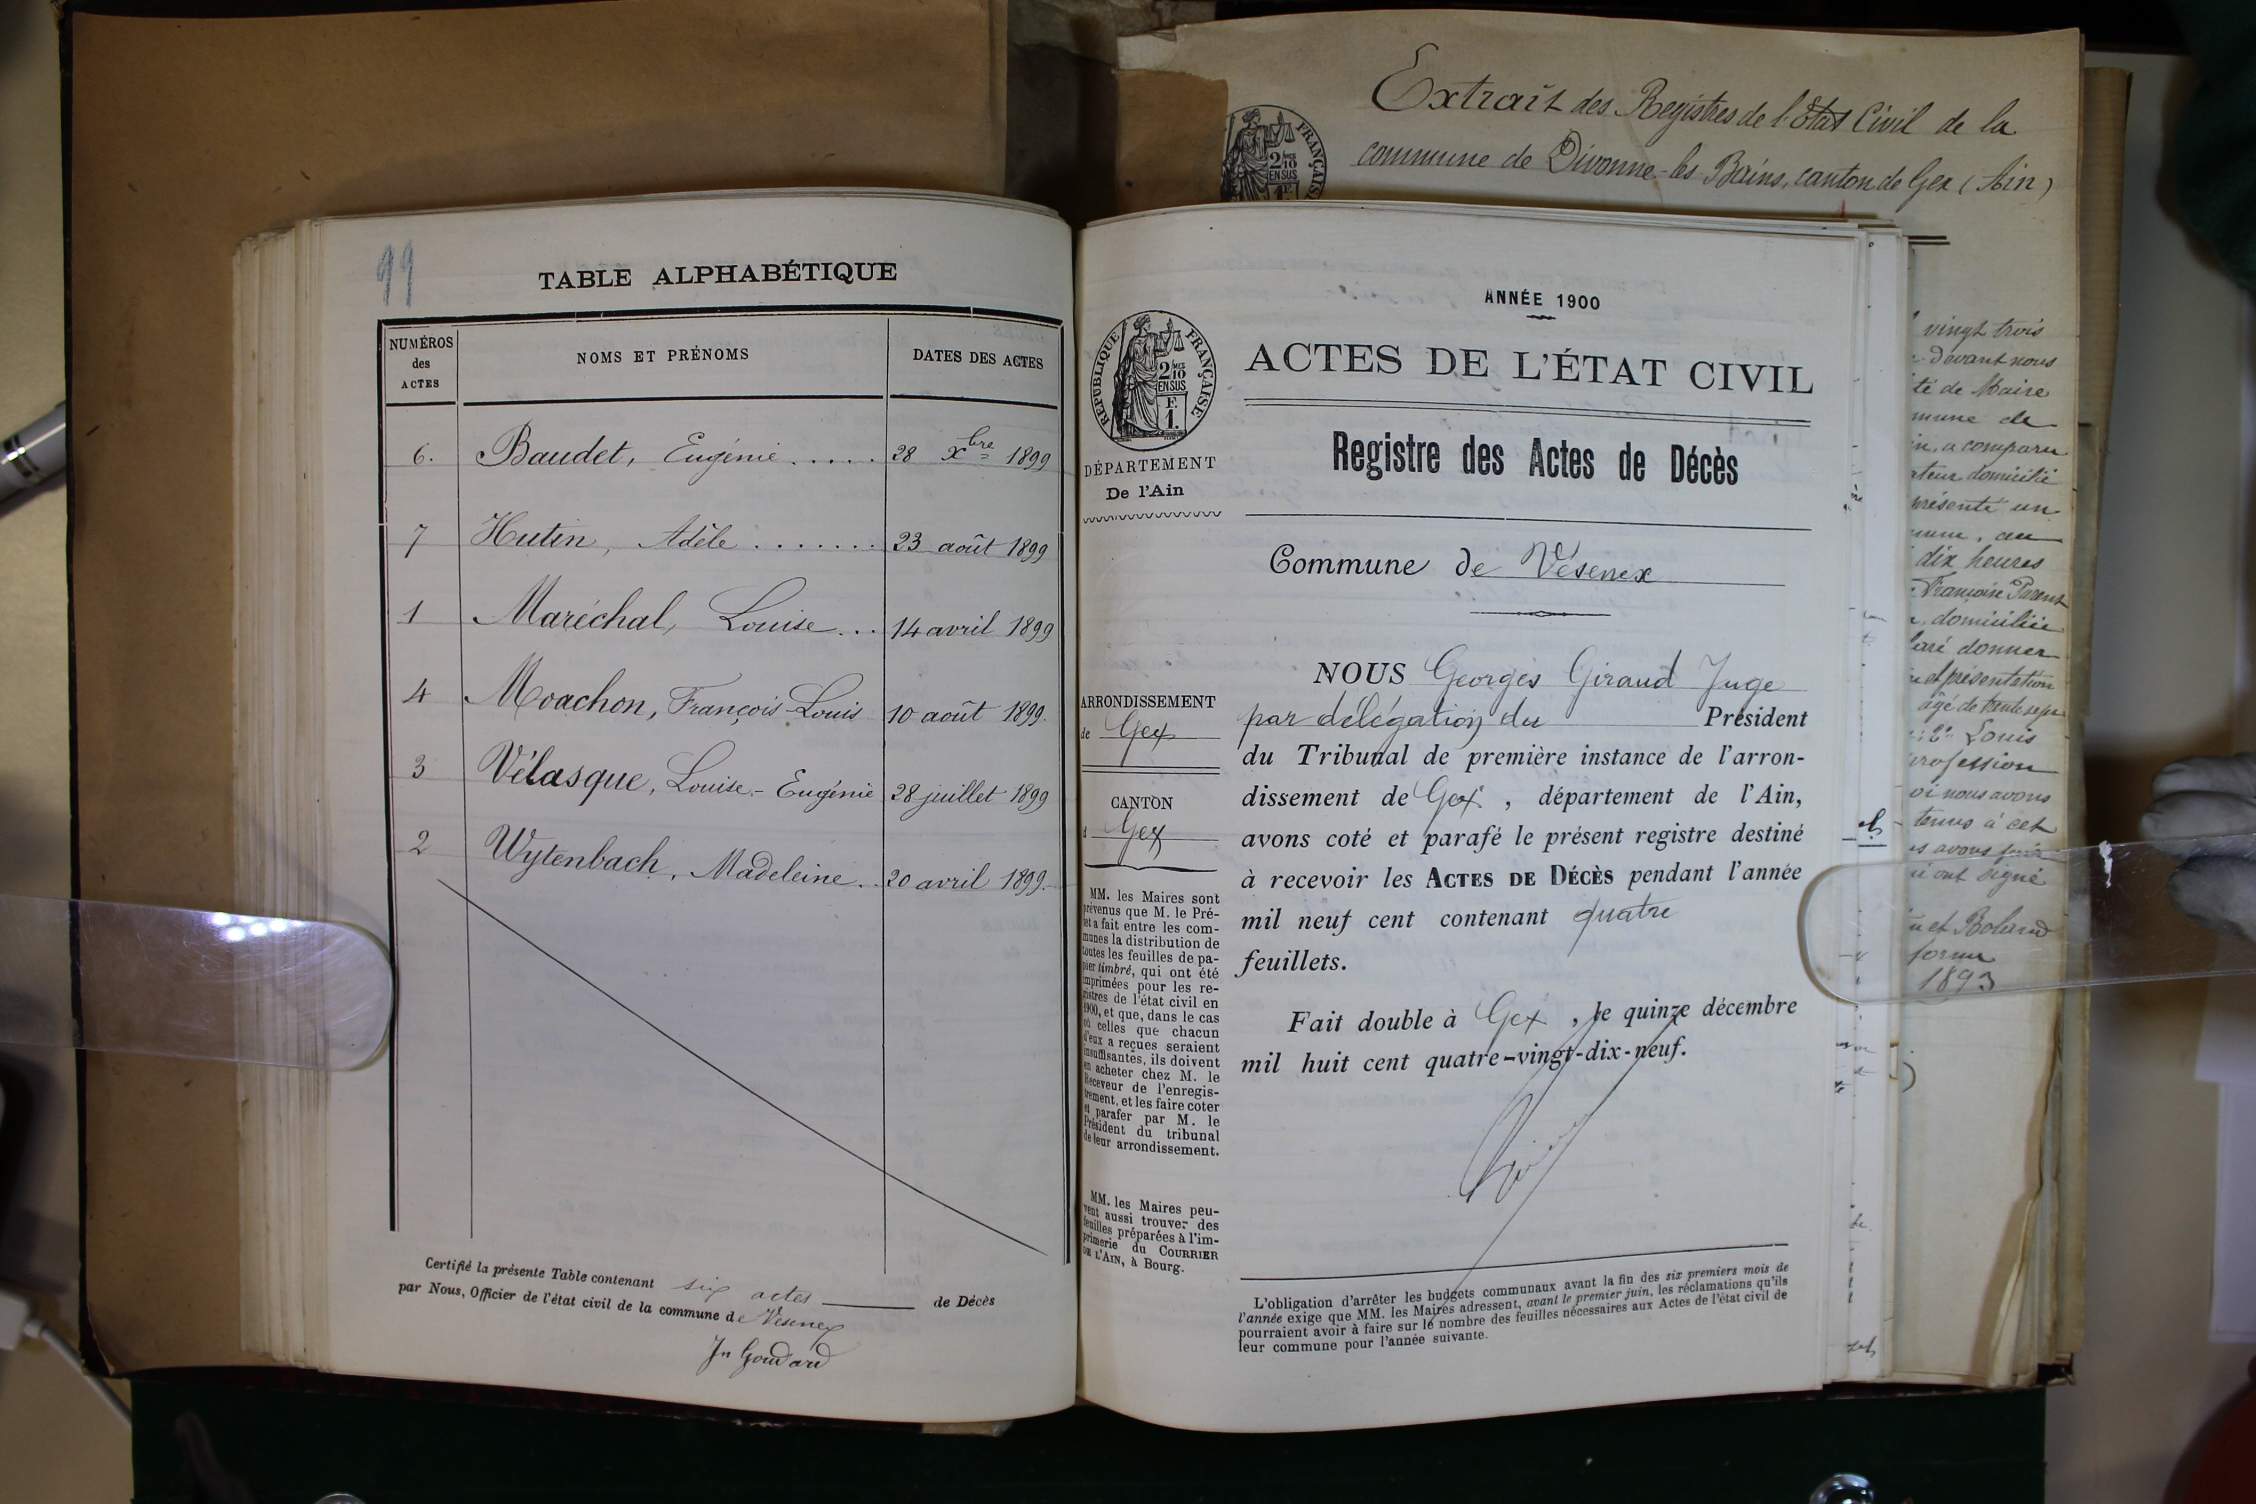 99
TABLE ALPHABÉTIQUE
NUMÉROS des ACTES
NOMS ET PRÉNOMS
DATES DES ACTES
6. Baudet, Eugénie ..... 28 Xbre 1899
7 Hutin, Adèle ....... 23 août 1899
1 Maréchal, Louise ... 14 avril 1899
4 Moachon, François-Louis 10 août 1899.
3 Vélasque, Louise-Eugénie 28 juillet 1899
2 Wytenbach, Madeleine .. 20 avril 1899.
Certifié la présente Table contenant six actes de Décès
par Nous, Officier de l'état civil de la commune de Vésenex
Jn Goudard
ANNÉE 1900
RÉPUBLIQUE FRANÇAISE
2 MES
10
EN SUS
F.
1.
ACTES DE L'ÉTAT CIVIL
Registre des Actes de Décès
DÉPARTEMENT
De l'Ain
Commune de Vésenex
ARRONDISSEMENT
de Gex
CANTON
d Gex
MM. les Maires sont
prévenus que M. le Pré-
fet a fait entre les com-
munes la distribution de
toutes les feuilles de pa-
pier timbré, qui ont été
imprimées pour les re-
gistres de l'état civil en
1900, et que, dans le cas
où celles que chacun
d'eux a reçues seraient
insuffisantes, ils doivent
en acheter chez M. le
Receveur de l'enregis-
trement, et les faire coter
et parafer par M. le
Président du tribunal
de leur arrondissement.
MM. les Maires peu-
vent aussi trouver des
feuilles préparées à l'im-
primerie du COURRIER
DE L'AIN, à Bourg.
NOUS Georges Giraud Juge
par délégation du Président
du Tribunal de première instance de l'arron-
dissement de Gex , département de l'Ain,
avons coté et parafé le présent registre destiné
à recevoir les ACTES DE DÉCÈS pendant l'année
mil neuf cent contenant quatre
feuillets.
Fait double à Gex , le quinze décembre
mil huit cent quatre-vingt-dix-neuf.
L'obligation d'arrêter les budgets communaux avant la fin des six premiers mois de
l'année exige que MM. les Maires adressent, avant le premier juin, les réclamations qu'ils
pourraient avoir à faire sur le nombre des feuilles nécessaires aux Actes de l'état civil de
leur commune pour l'année suivante.
Extrait des Registres de l'Etat Civil de la
commune de Divonne-les Bains, canton de Gex (Ain)
FRANÇAIS
2 MES
10
EN SUS
vingt trois
devant nous
té de Maire
mune de
in, a comparu
ateur domicilié
présenté un
au
dix heures
Françoise Parent
domiciliée
laré donner
et présentation
âgé de trente sept
Louis
profession
oi nous avons
tenus à cet
s avons
ont signé
et Roland
1893